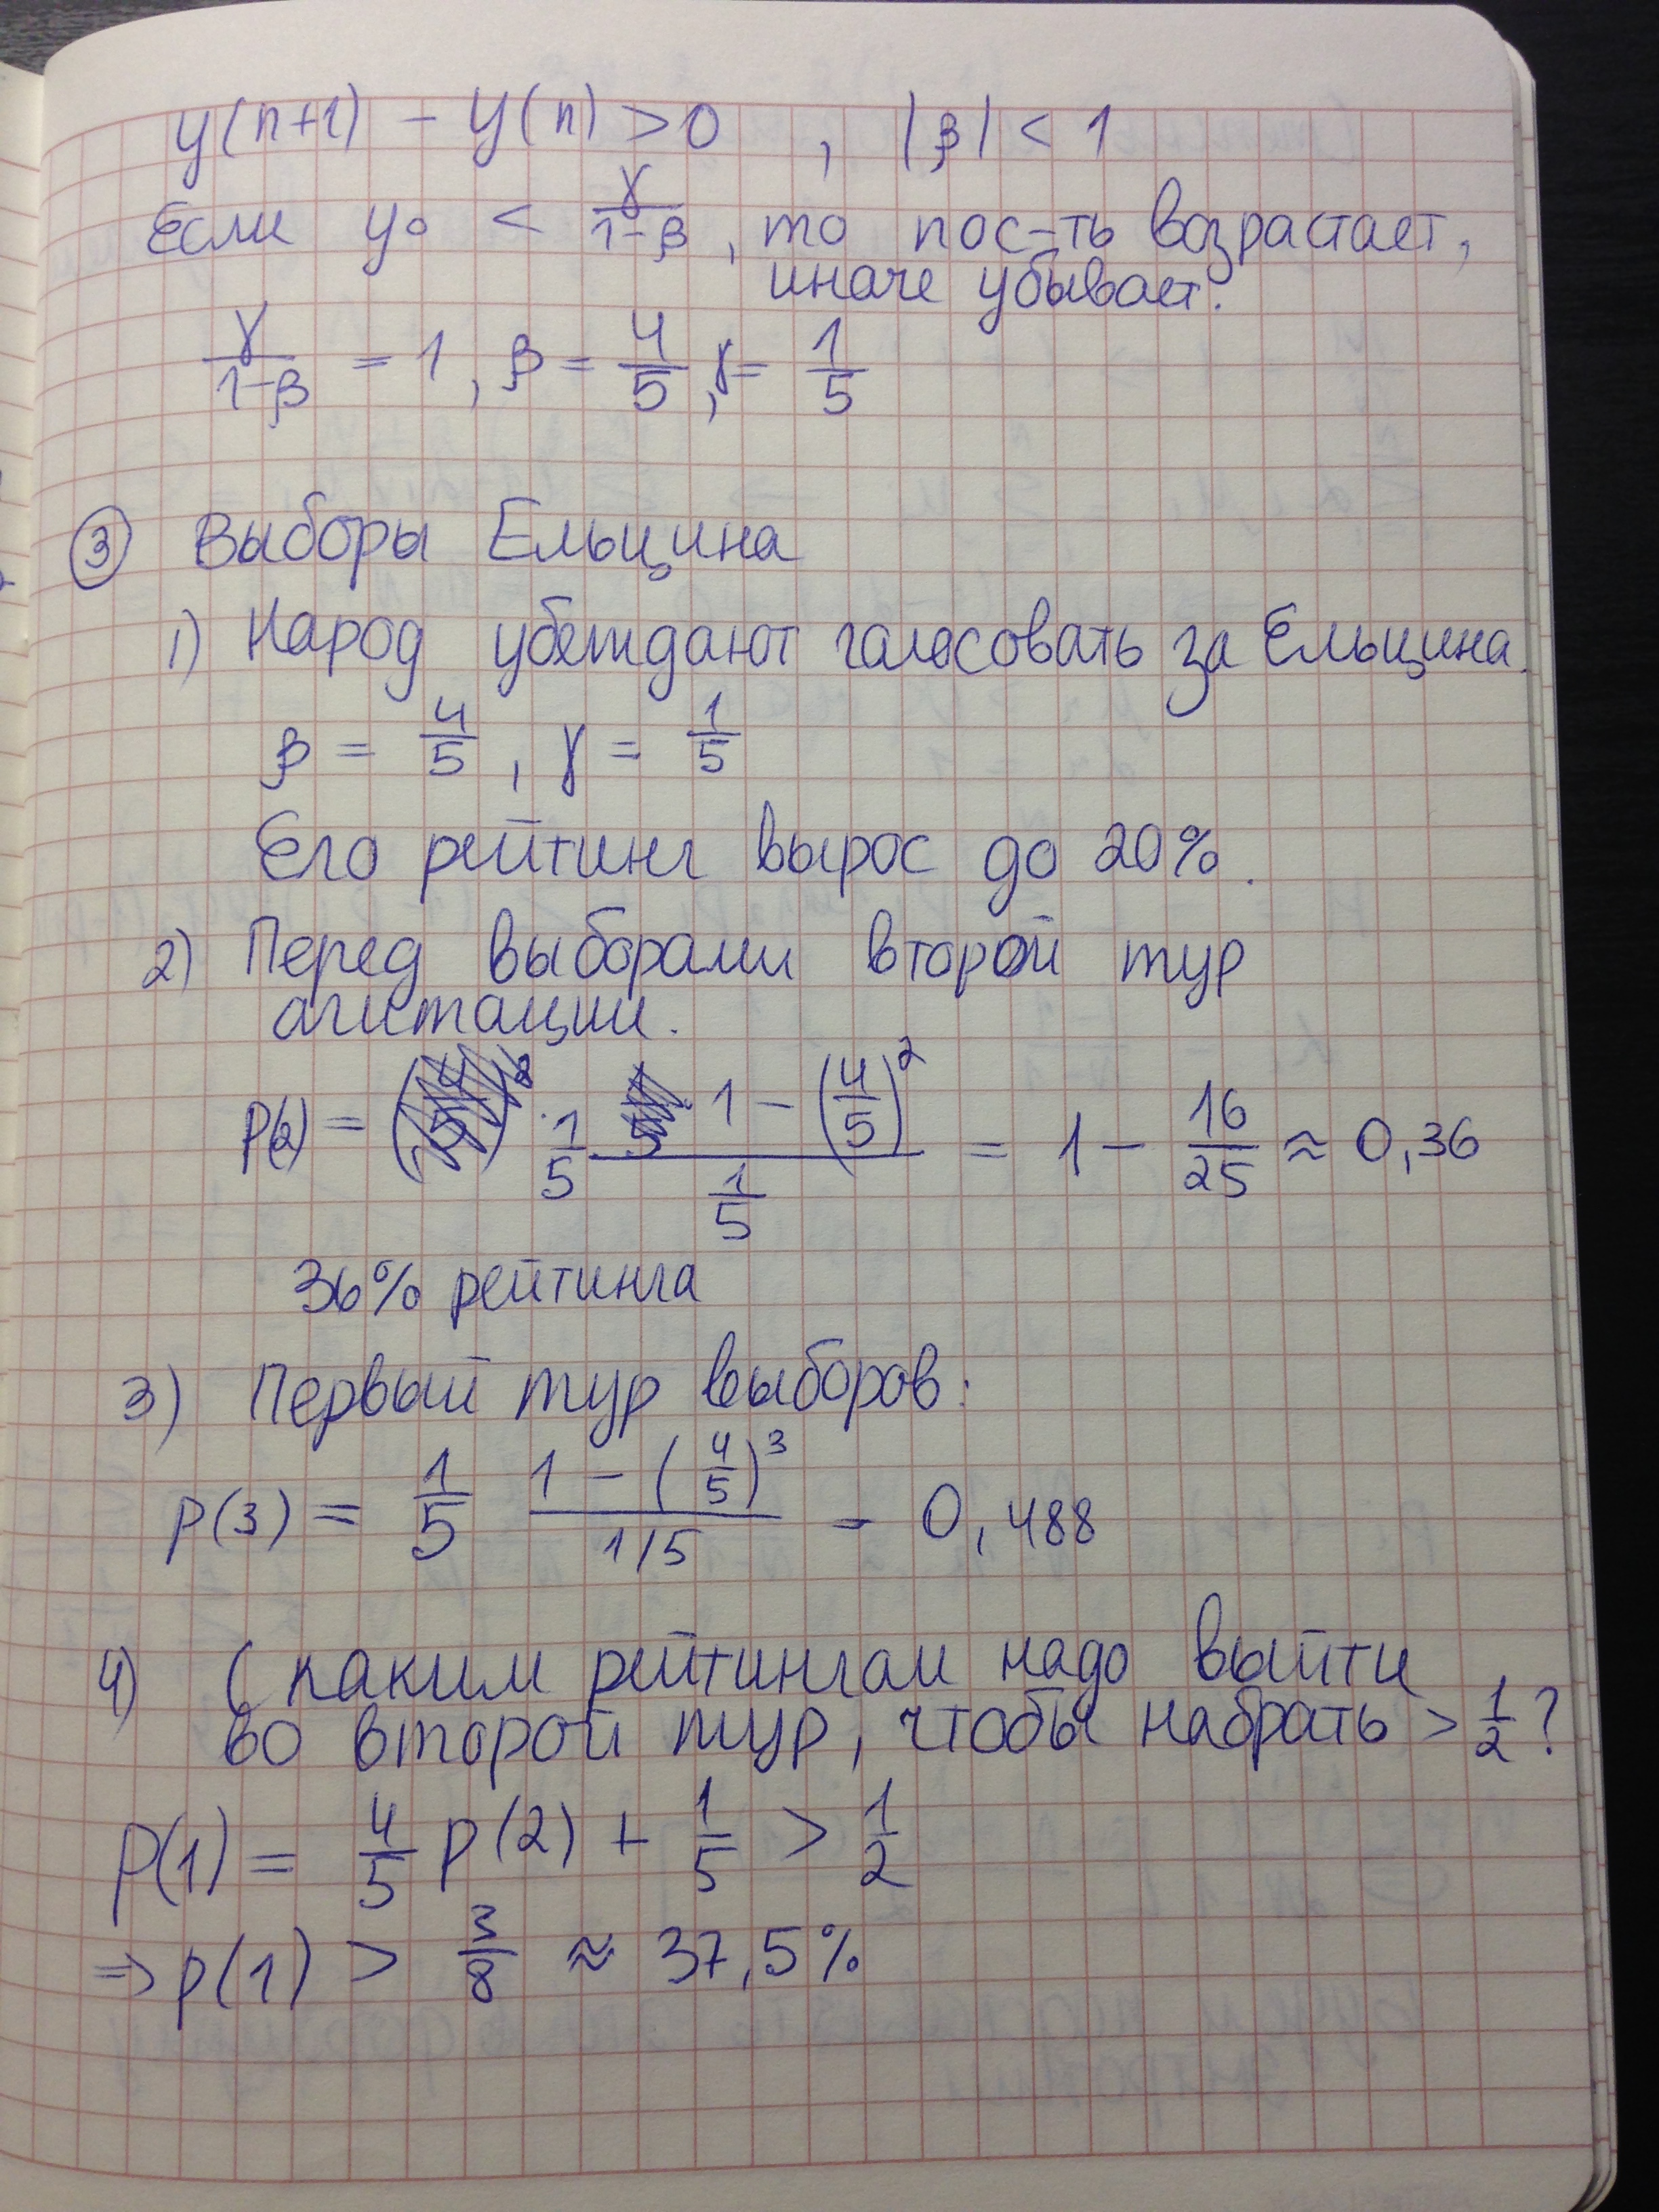 y(n+1) - y(n) > 0 , |β| < 1
Если y₀ < γ/(1-β), то пос-ть возрастает,
иначе убывает.
γ/(1-β) = 1, β = 4/5, γ = 1/5
③ Выборы Ельцина
1) Народ убеждают голосовать за Ельцина.
β = 4/5, γ = 1/5
Его рейтинг вырос до 20%.
2) Перед выборами второй тур
агитации.
P(2) = 1/5 · (1 - (4/5)²)/(1/5) = 1 - 16/25 ≈ 0,36
36% рейтинга
3) Первый тур выборов:
p(3) = 1/5 (1 - (4/5)³)/(1/5) = 0,488
4) С каким рейтингом надо выйти
во второй тур, чтобы набрать > 1/2?
p(1) = 4/5 p(2) + 1/5 > 1/2
⇒ p(1) > 3/8 ≈ 37,5%